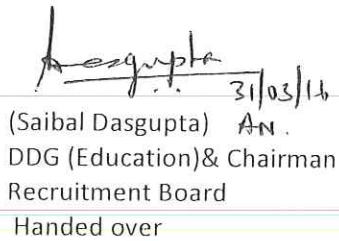 Dasgupta
31/03/16
(Saibal Dasgupta) AN.
DDG (Education)& Chairman
Recruitment Board
Handed over